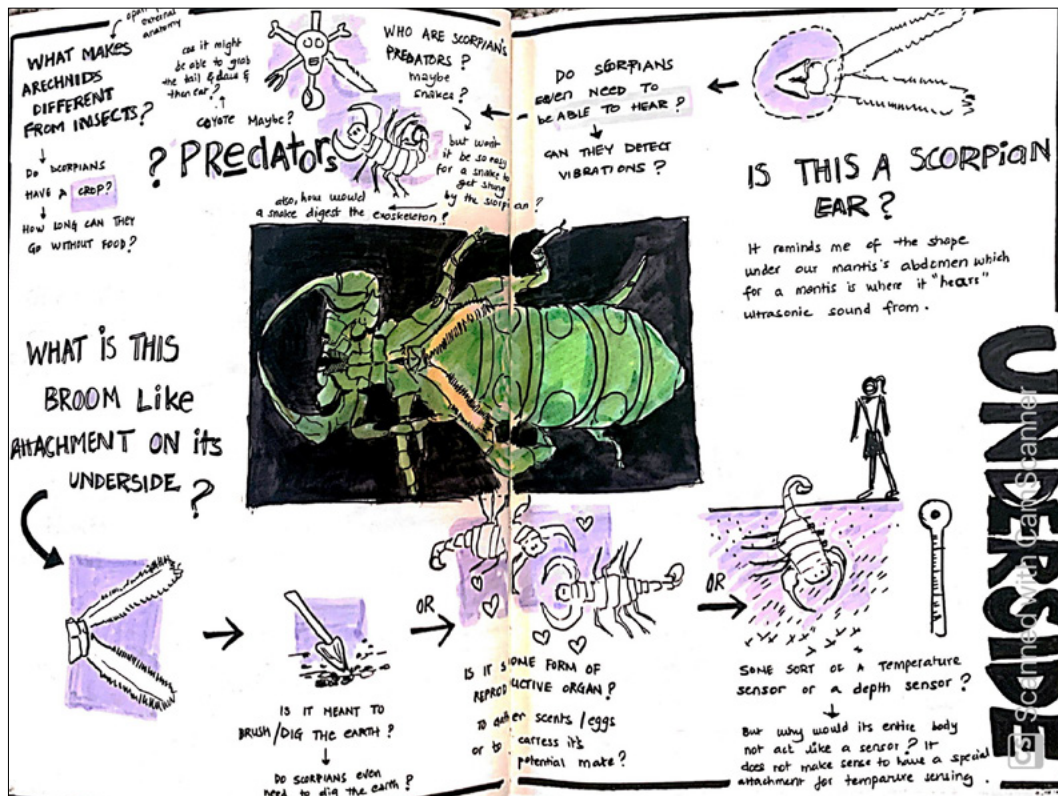 external
anatomy
WHAT MAKES
ARECHNIDS
DIFFERENT
FROM INSECTS?
DO SCORPIANS
HAVE A CROP?
HOW LONG CAN THEY
GO WITHOUT FOOD?
cos it might
be able to grab
the tail & claws &
then eat?
COYOTE Maybe?
? PREdators
WHO ARE SCORPIAN'S
PREDATORS?
maybe
snakes?
but wont
it be so easy
for a snake to
get stung
by the scorpian?
also, how would
a snake digest the exoskeleton?
DO SCORPIANS
EVEN NEED TO
be ABLE TO HEAR?
CAN THEY DETECT
VIBRATIONS?
IS THIS A SCORPIAN
EAR?
It reminds me of the shape
under our mantis's abdomen which
for a mantis is where it "hears"
ultrasonic sound from.
WHAT IS THIS
BROOM Like
ATTACHMENT ON its
UNDERSIDE?
IS IT MEANT TO
BRUSH/DIG THE EARTH?
DO SCORPIANS even
need to dig the earth?
OR
IS IT SOME FORM OF
REPRODUCTIVE ORGAN?
TO gather scents/eggs
or to carress its
potential mate?
OR
SOME SORT OF A Temperature
sensor or a depth sensor?
But why would its entire body
not act like a sensor? It
does not make sense to have a special
attachment for temparure sensing.
UNDERSIDE
CS Scanned with CamScanner